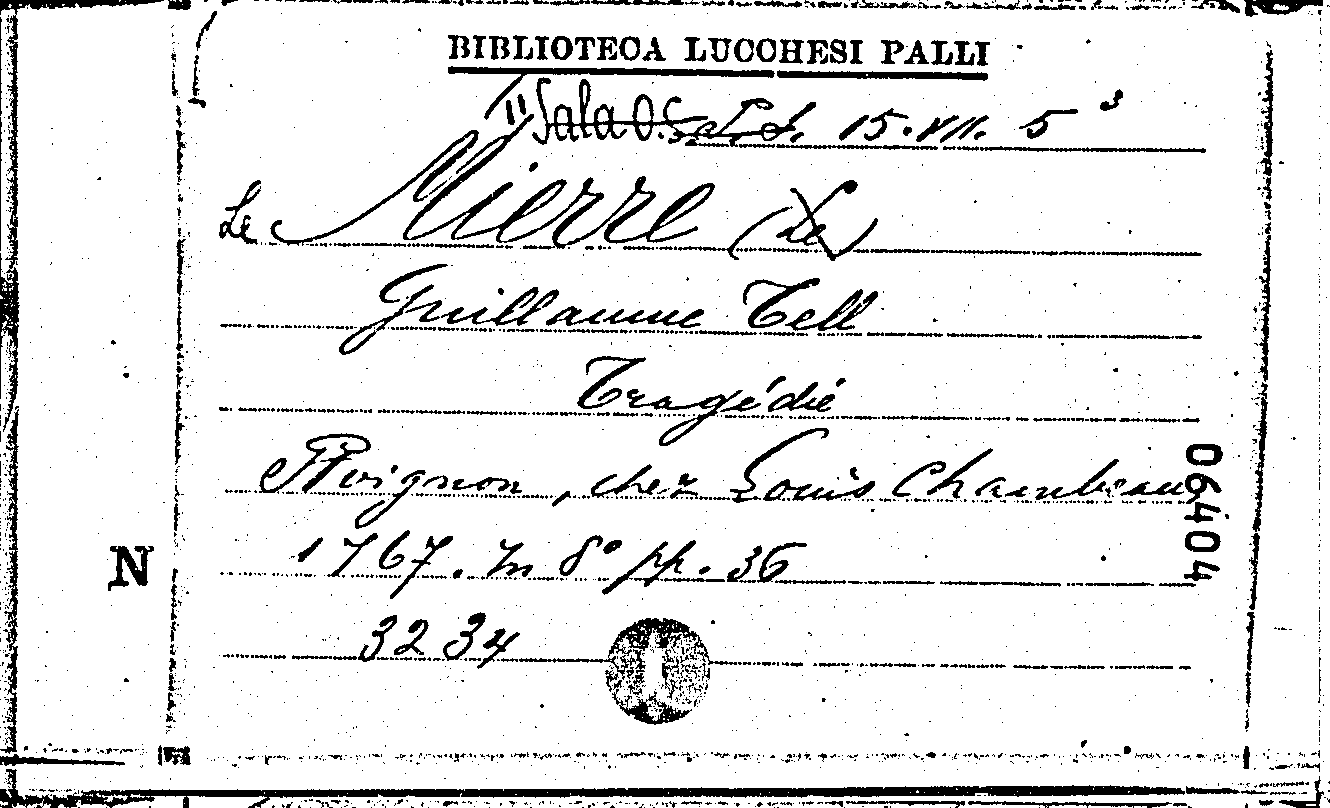 BIBLIOTECA LUCCHESI PALLI
II Sala 15.VII. 5 3
Le Mierre (Le)
Guillaume Tell
Tragédie
Avignon, chez Louis Chambeau,
1767. In 8° pp. 36
3234
N
06404